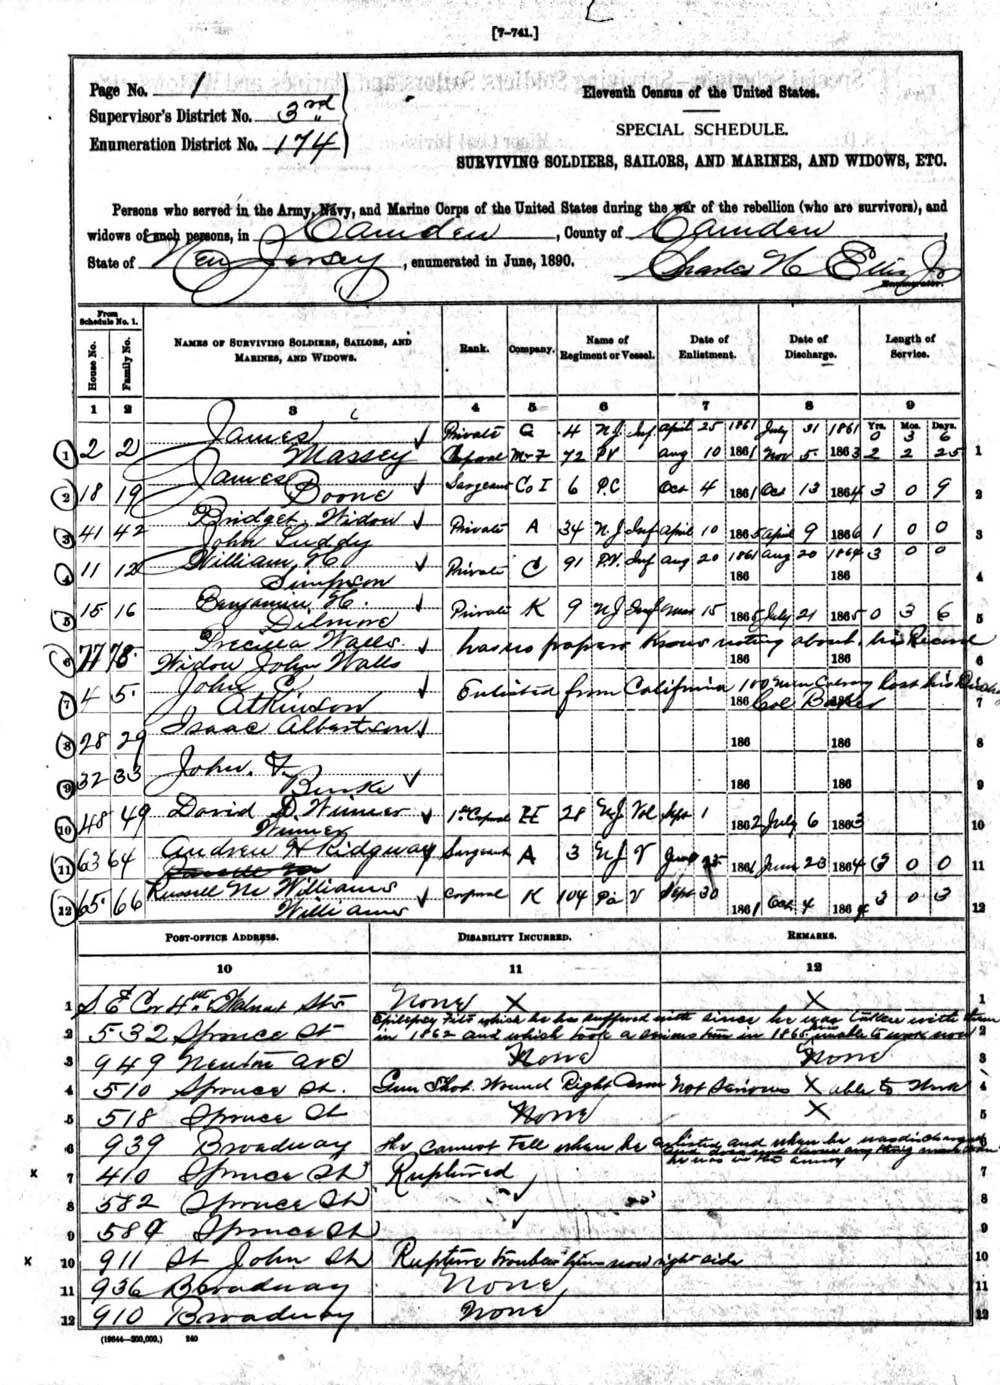 [7-741.]
Page No. 1
Supervisor's District No. 3rd
Enumeration District No. 174
Eleventh Census of the United States.
SPECIAL SCHEDULE.
SURVIVING SOLDIERS, SAILORS, AND MARINES, AND WIDOWS, ETC.
Persons who served in the Army, Navy, and Marine Corps of the United States during the war of the rebellion (who are survivors), and
widows of such persons, in Camden, County of Camden,
State of New Jersey, enumerated in June, 1890. Charles H Ellis Jr
Enumerator.
From Schedule No. 1.
House No. Family No. NAMES OF SURVIVING SOLDIERS, SAILORS, AND MARINES, AND WIDOWS. Rank. Company. Name of Regiment or Vessel. Date of Enlistment. Date of Discharge. Length of Service.
1 2 3 4 5 6 7 8 9
Yrs. Mos. Days.
James Private G 4 NJ Inf April 25 1861 July 31 1861 0 3 6
1 2 2 Massey Corporal 72 PV Aug 10 1861 Nov 5 1863 2 2 25 1
2 18 19 James Boone Sargeant Co I 6 P.C Oct 4 1861 Oct 13 1864 3 0 9 2
3 41 42 Bridget Widow John Luddy Private A 34 NJ Inf April 10 1865 April 9 1866 1 0 0 3
4 11 12 William H Simpson Private C 91 P.V. Inf Aug 20 1861 Aug 20 1864 3 0 0 4
186 186
5 15 16 Benjamin H. Dilmore Private K 9 NJ Inf Mar 15 1865 July 21 1865 0 3 6 5
6 77 78 Precilla Walls has no papers knows noting about his Record
Widow John Walls 186 186 6
7 4 5 John C Atkinson Enlisted from California 100 men Calvary lost his
186 Col Baker 186 7
8 28 29 Isaac Albertson 186 186 8
9 32 33 John F Burke 186 186 9
10 48 49 David D. Winner 1st Corporal E 28 NJ Vol Sept 1 1862 July 6 1863 10
Winner
11 63 64 Andrew H Ridgway Sargeant A 3 NJ V June 25 1861 June 23 1864 3 0 0 11
12 65 66 Russell M Williams Corporal K 104 Pa V Sept 30 1861 Oct 4 1864 3 0 3 12
Williams
POST-OFFICE ADDRESS. DISABILITY INCURRED. REMARKS.
10 11 12
1 S E Cor 4th & Walnut Sts None X X 1
2 532 Spruce St Epilepsy Fits which he has suffered with since he was taken with them
in 1862 and which took a serious turn in 1865 unable to work now 2
3 949 Newton Ave None None 3
4 510 Spruce St. Gun Shot Wound Right Arm Not Serious X able to Work 4
5 518 Spruce St None X 5
6 939 Broadway She Cannot Tell when he enlisted and when he was discharged
he was in the army 6
x 7 410 Spruce St Ruptured 7
8 582 Spruce St 8
9 584 Spruce St 9
x 10 911 St John St Rupture troubles him now right side 10
11 936 Broadway None 11
12 910 Broadway None 12
(19644—200,000.) 240